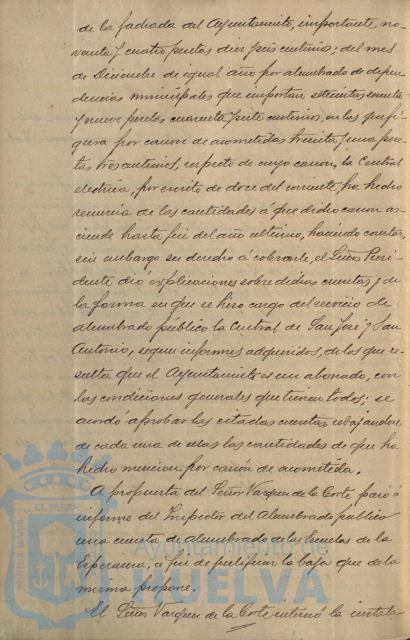 de la fachada del Ayuntamiento, importante, no-
venta y cuatro pesetas diez y seis centimos; del mes
de Diciembre de igual año por alumbrado de depen-
dencias municipales que importan setecientas
y nueve pesetas cuarenta y siete centimos, en las que fi-
gura por canon de acometidas treinta y una pese-
tas tres centimos, respecto de cuyo canon, la Central
electrica, por escrito de doce del corriente, ha hecho
renuncia de las cantidades á que dicho canon as-
ciende hasta fin del año ultimo, haciendo constar,
sin embargo su derecho á cobrarle, el Señor Presi-
dente dió explicaciones sobre dichas cuentas y de
la forma en que se hizo cargo del servicio de
alumbrado público la Central de San José y San
Antonio, segun informes adquiridos, de los que re-
sulta que el Ayuntamiento es un abonado, con
las condiciones generales que tienen todos; se
acordó aprobar las citadas cuentas rebajandose
de cada una de ellas las cantidades de que ha
hecho mencion por canon de acometida.
A propuesta del Señor Vazquez de la Corte pasó á
informe del Inspector del Alumbrado público
una cuenta de alumbrado de las Escuelas de la
Esperanza, á fin de justificar la baja que de la
misma propone.
El Señor Vazquez de la Corte interesó la instala
Ayuntamiento de
HUELVA